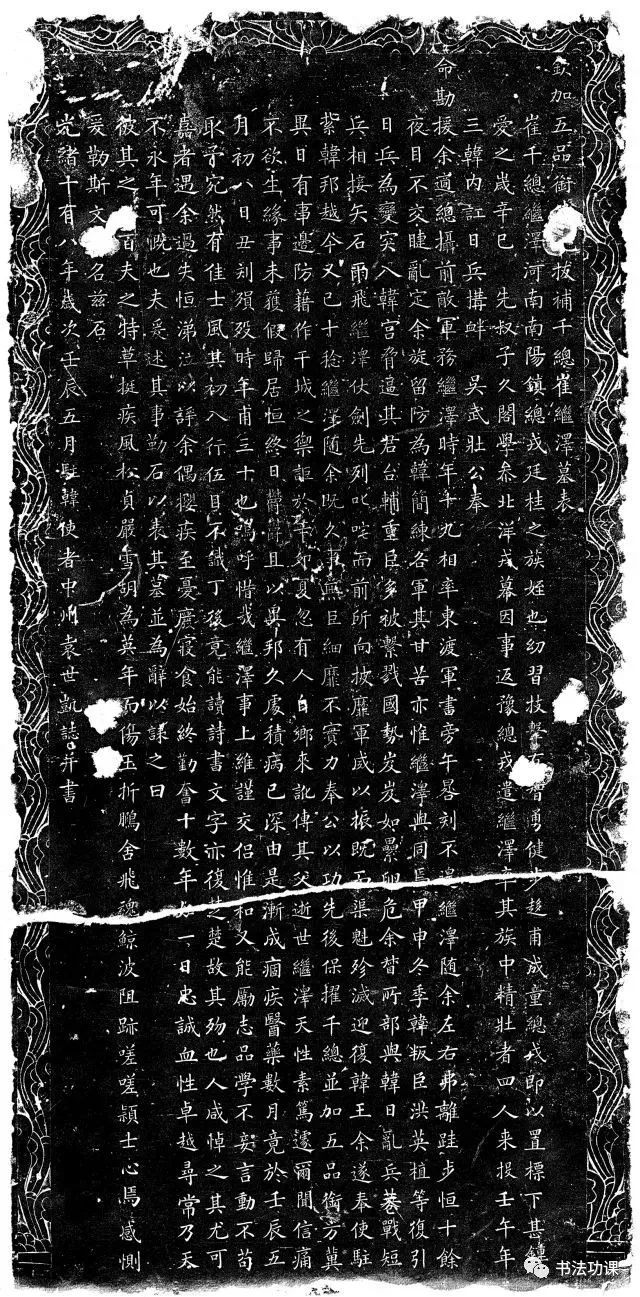 欽加五品銜拔補千總崔繼澤墓表
崔千總繼澤河南南陽鎮總戎廷桂之族姪也幼習技擊勇健步趍甫成童總戎即以置標下甚鍾
愛之歲辛巳先叔子久閣學參北洋戎幕因事返豫總戎遣繼澤率其族中精壯者四人來投壬午年
三韓內訌日兵搆衅吳武壯公奉
命勘援余適總攝前敵軍務繼澤時年十九相率東渡軍書旁午晷刻不遑繼澤隨余左右弗離跬步恒十餘
夜目不交睫亂定余旋留防為韓簡練各軍其甘苦亦惟繼澤與同焉甲申冬季韓叛臣洪英植等復引
日兵為變突入韓宮脅逼其君台輔重臣多被繫戮國勢岌岌如纍卵危余督所部與韓日亂兵巷戰短
兵相接矢石雨飛繼澤仗劍先列叱咤而前所向披靡軍威以振既而渠魁殄滅迎復韓王余遂奉使駐
紮韓邦越今又已十稔繼澤隨余既久事無巨細靡不實力奉公以功先後保擢千總並加五品銜方冀
異日有事邊防藉作干城之禦詎於辛卯夏忽有人自鄉來訛傳其父逝世繼澤天性素篤遽爾聞信痛
不欲生緣事未獲假歸居恒終日鬱鬱且以異邦久處積病已深由是漸成痼疾醫藥數月竟於壬辰五
月初八日丑刻殞歿時年甫三十也嗚呼惜哉繼澤事上維謹交侶惟和又能勵志品學不妄言動不苟
取予宛然有佳士風其初入行伍目不識丁後竟能讀詩書文字亦復楚楚故其殉也人咸悼之其尤可
嘉者遇余過失恒涕泣以諍余偶攖疾至憂廢寢食始終勤奮十數年如一日忠誠血性卓越尋常乃天
不永年可慨也夫爰述其事勒石以表其墓並為辭以誄之曰
彼其之百夫之特草挺疾風松貞嚴雪胡為英年而傷玉折鵬舍飛魂鯨波阻跡嗟嗟穎士心焉感惻
爰勒斯文名茲石
光緒十有八年歲次壬辰五月駐韓使者中州袁世凱誌并書
书法功课